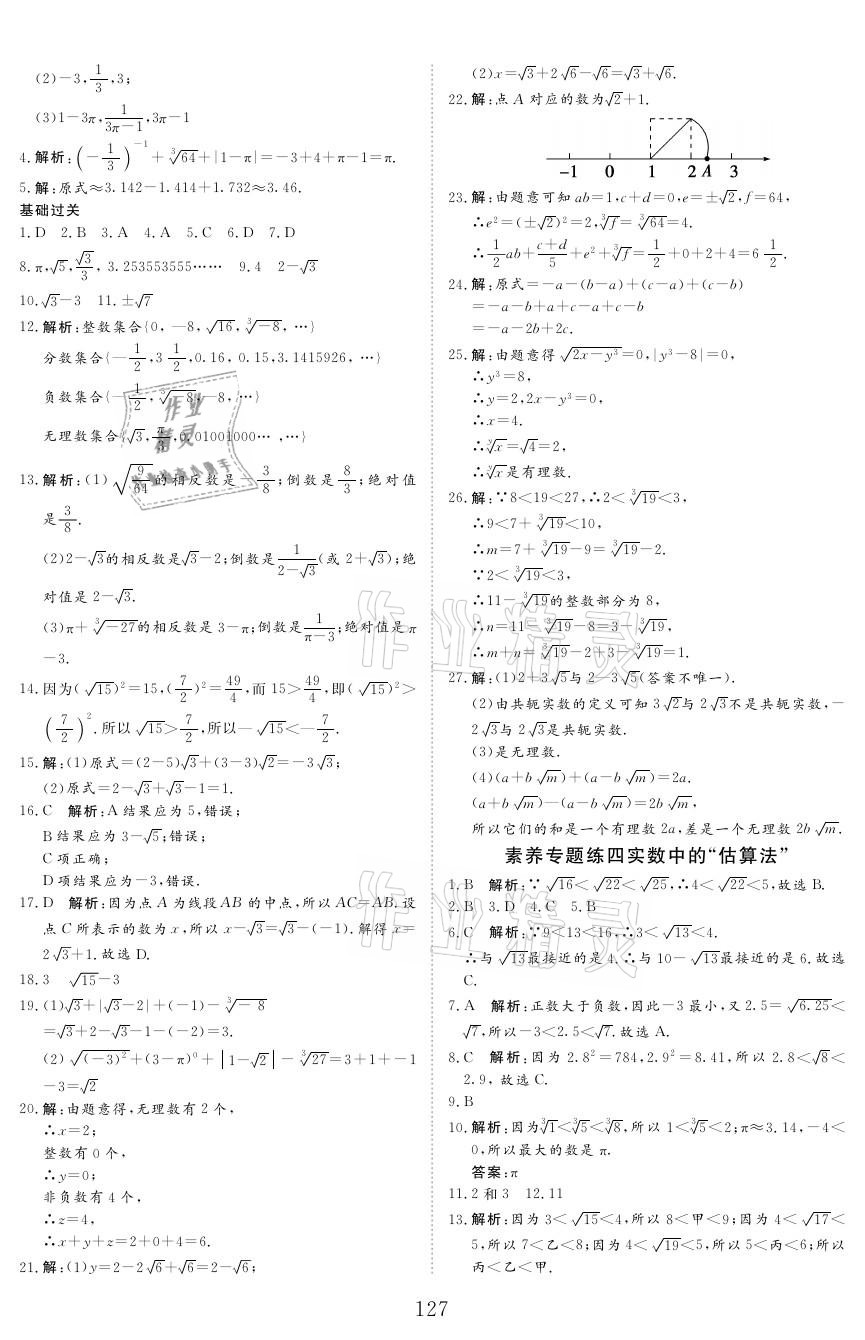 (2)-3,1/3,3;
(3)1-3π,1/(3π-1),3π-1
4.解析:(-1/3)^-1+∛64+|1-π|=-3+4+π-1=π.
5.解:原式≈3.142-1.414+1.732≈3.46.
基础过关
1.D 2.B 3.A 4.A 5.C 6.D 7.D
8.π,√5,√3/3, 3.253553555…… 9.4 2-√3
10.√3-3 11.±√7
12.解析:整数集合{0,-8,√16,∛-8,…}
分数集合{-1/2,3 1/2,0.16,0.15,3.1415926,…}
负数集合{-1/2,∛-8,-8,…}
无理数集合{√3,π/3,0.01001000…,…}
13.解析:(1)√(9/64)的相反数是-3/8;倒数是8/3;绝对值
是3/8.
(2)2-√3的相反数是√3-2;倒数是1/(2-√3)(或2+√3);绝
对值是2-√3.
(3)π+∛-27的相反数是3-π;倒数是1/(π-3);绝对值是π
-3.
14.因为(√15)²=15,(7/2)²=49/4,而15>49/4,即(√15)²>
(7/2)².所以√15>7/2,所以-√15<-7/2.
15.解:(1)原式=(2-5)√3+(3-3)√2=-3√3;
(2)原式=2-√3+√3-1=1.
16.C 解析:A结果应为5,错误;
B结果应为3-√5;错误;
C项正确;
D项结果应为-3,错误.
17.D 解析:因为点A为线段AB的中点,所以AC=AB.设
点C所表示的数为x,所以x-√3=√3-(-1).解得x=
2√3+1.故选D.
18.3 √15-3
19.(1)√3+|√3-2|+(-1)-∛-8
=√3+2-√3-1-(-2)=3.
(2)√(-3)²+(3-π)⁰+|1-√2|-∛27=3+1+-1
-3=√2
20.解:由题意得,无理数有2个,
∴x=2;
整数有0个,
∴y=0;
非负数有4个,
∴z=4,
∴x+y+z=2+0+4=6.
21.解:(1)y=2-2√6+√6=2-√6;
(2)x=√3+2√6-√6=√3+√6.
22.解:点A对应的数为√2+1.
-1 0 1 2 A 3
23.解:由题意可知ab=1,c+d=0,e=±√2,f=64,
∴e²=(±√2)²=2,∛f=∛64=4.
∴1/2ab+(c+d)/5+e²+∛f=1/2+0+2+4=6 1/2.
24.解:原式=-a-(b-a)+(c-a)+(c-b)
=-a-b+a+c-a+c-b
=-a-2b+2c.
25.解:由题意得√(2x-y³)=0,|y³-8|=0,
∴y³=8,
∴y=2,2x-y³=0,
∴x=4.
∴√x=√4=2,
∴√x是有理数.
26.解:∵8<19<27,∴2<∛19<3,
∴9<7+∛19<10,
∴m=7+∛19-9=∛19-2.
∵2<∛19<3,
∴11-∛19的整数部分为8,
∴n=11-∛19-8=3-∛19,
∴m+n=∛19-2+3-∛19=1.
27.解:(1)2+3√5与2-3√5(答案不唯一).
(2)由共轭实数的定义可知3√2与2√3不是共轭实数,-
2√3与2√3是共轭实数.
(3)是无理数.
(4)(a+b√m)+(a-b√m)=2a.
(a+b√m)-(a-b√m)=2b√m,
所以它们的和是一个有理数2a,差是一个无理数2b√m.
素养专题练四实数中的“估算法”
1.B 解析:∵√16<√22<√25,∴4<√22<5,故选B.
2.B 3.D 4.C 5.B
6.C 解析:∵9<13<16,∴3<√13<4.
∴与√13最接近的是4.∴与10-√13最接近的是6.故选
C.
7.A 解析:正数大于负数,因此-3最小,又2.5=√6.25<
√7,所以-3<2.5<√7.故选A.
8.C 解析:因为2.8²=784,2.9²=8.41,所以2.8<√8<
2.9,故选C.
9.B
10.解析:因为∛1<∛5<∛8,所以1<∛5<2;π≈3.14,-4<
0,所以最大的数是π.
答案:π
11.2和3 12.11
13.解析:因为3<√15<4,所以8<甲<9;因为4<√17<
5,所以7<乙<8;因为4<√19<5,所以5<丙<6;所以
丙<乙<甲.
127
作业精灵